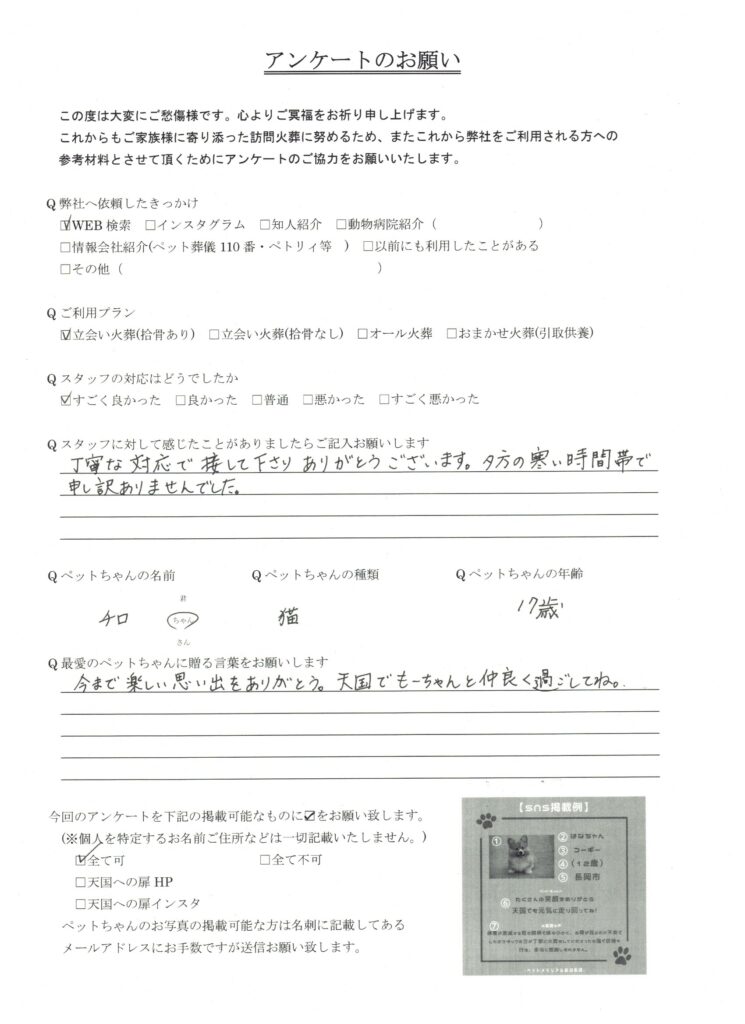 アンケートのお願い
この度は大変にご愁傷様です。心よりご冥福をお祈り申し上げます。
これからもご家族様に寄り添った訪問火葬に努めるため、またこれから弊社をご利用される方への
参考材料とさせて頂くためにアンケートのご協力をお願いいたします。
Q 弊社へ依頼したきっかけ
☑WEB 検索 □インスタグラム □知人紹介 □動物病院紹介（ ）
□情報会社紹介(ペット葬儀 110 番・ペトリィ等 ) □以前にも利用したことがある
□その他（ ）
Q ご利用プラン
☑立会い火葬(拾骨あり) □立会い火葬(拾骨なし) □オール火葬 □おまかせ火葬(引取供養)
Q スタッフの対応はどうでしたか
☑すごく良かった □良かった □普通 □悪かった □すごく悪かった
Q スタッフに対して感じたことがありましたらご記入お願いします
丁寧な対応で接して下さりありがとうございます。夕方の寒い時間帯で
申し訳ありませんでした。
Q ペットちゃんの名前 Q ペットちゃんの種類 Q ペットちゃんの年齢
君
チロ ちゃん 猫 17歳
さん
Q 最愛のペットちゃんに贈る言葉をお願いします
今まで楽しい思い出をありがとう。天国でもーちゃんと仲良く過ごしてね。
今回のアンケートを下記の掲載可能なものに☑をお願い致します。
(※個人を特定するお名前ご住所などは一切記載いたしません。)
☑全て可 □全て不可
□天国への扉 HP
□天国への扉インスタ
ペットちゃんのお写真の掲載可能な方は名刺に記載してある
メールアドレスにお手数ですが送信お願い致します。
【sns掲載例】
① ② はなちゃん
③ コーギー
④ (12歳)
⑤ 長岡市
⑥ たくさんの笑顔をありがとう
天国でも元気に走り回ってね!
⑦